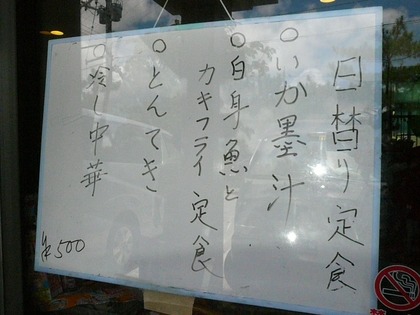 日替り定食
○いか墨汁
○白身魚と
カキフライ定食
○とんてき
○冷し中華
¥500